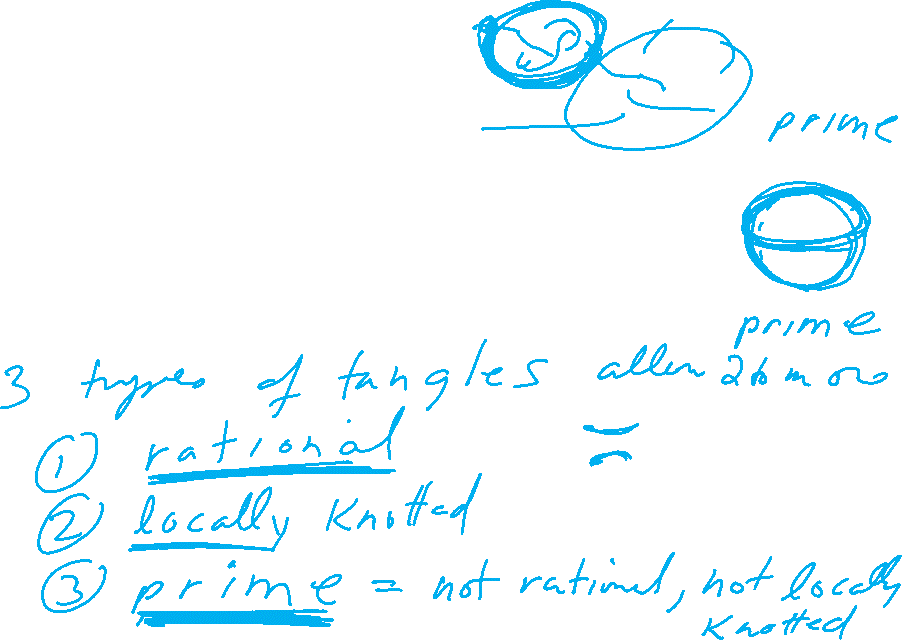 prime
prime
3 types of tangles allow 2 to m o
① rational
② locally knotted
③ prime = not rational, not locally
knotted